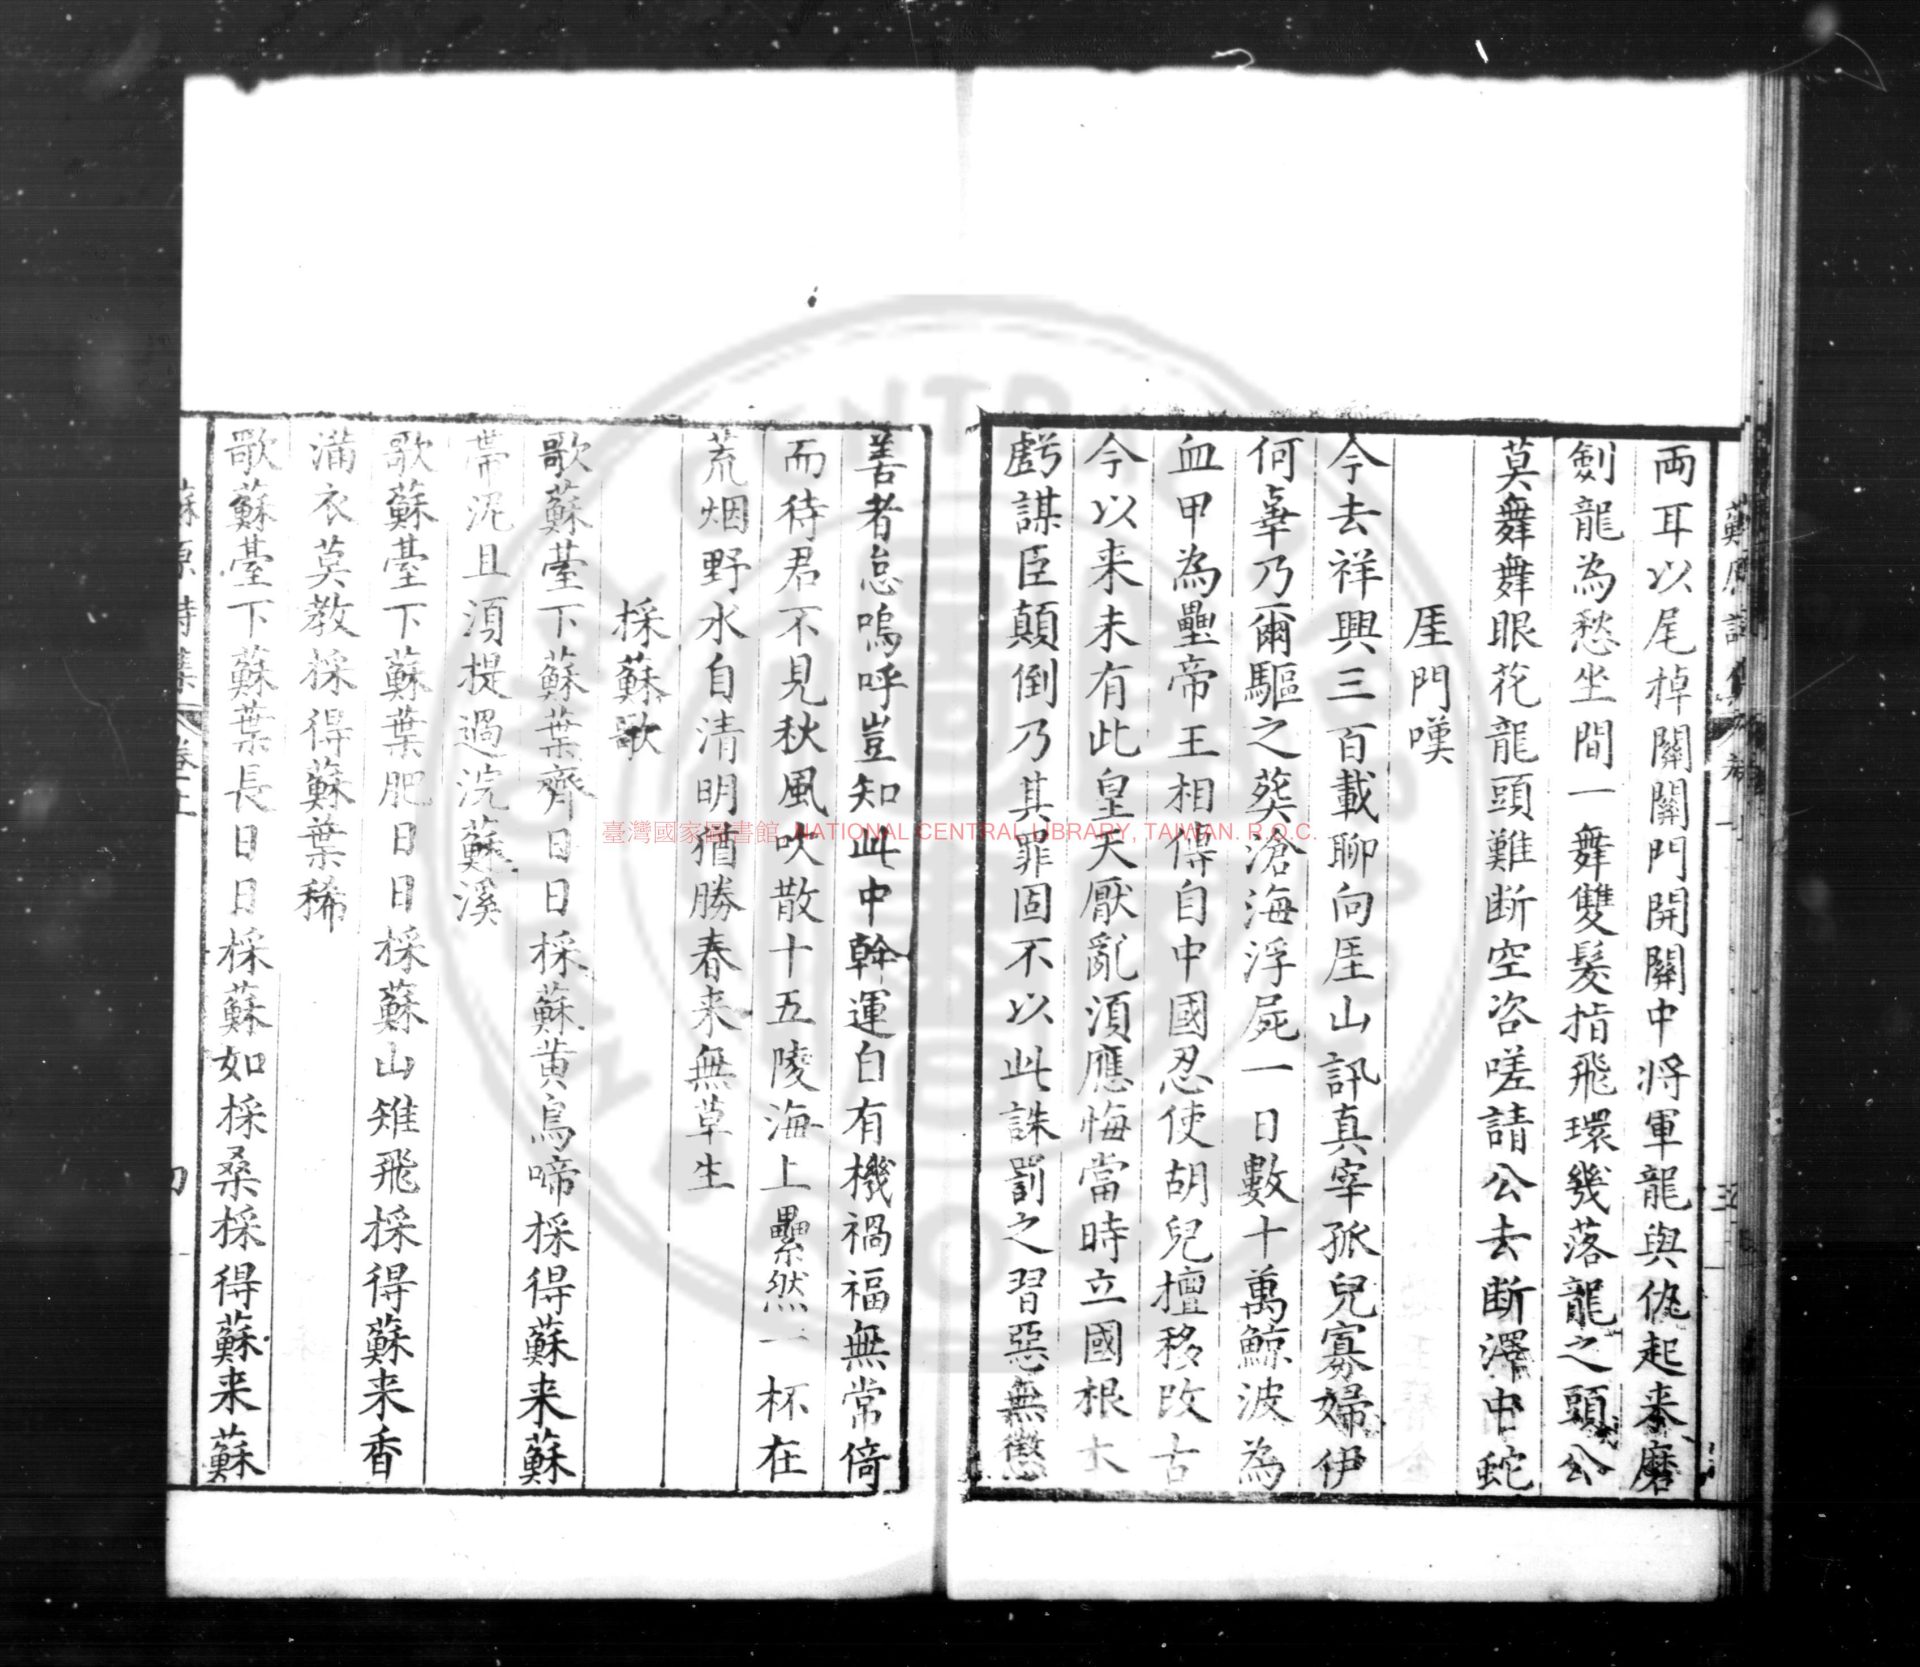 両耳以尾棹關關門開關中将軍龍與仇起来磨
劍龍為愁坐間一舞雙髮指飛環幾落龍之頭公
莫舞舞眼花龍頭難断空咨嗟請公去断澤中蛇
厓門嘆
今去祥興三百載聊向厓山訊真宰孤兒寡婦伊
何辜乃爾驅之葵滄海浮屍一日數十萬鯨波為
血甲為壘帝王相傳自中國忍使胡兒擅移改古
今以来未有此皇天厭亂須應悔當時立國根
虧謀臣顛倒乃其罪固不以此誅罰之習惡無懲
善者怠嗚呼豈知此中幹運自有機禍福無常倚
而待君不見秋風吹散十五陵海上纍然一杯在
荒烟野水自清明猶勝春来無草生
採蘇歌
歌蘇臺下蘇葉齊日日採蘇黄烏啼採得蘇来蘇
帶泥且須提過浣蘇溪
歌蘇臺下蘇葉肥日日採蘇山雉飛採得蘇来香
滿衣莫教採得蘇葉稀
歌蘇臺下蘇葉長日日採蘇如採桑採得蘇来蘇
蘇原詩集
臺灣國家圖書館, NATIONAL CENTRAL LIBRARY, TAIWAN. R.O.C.